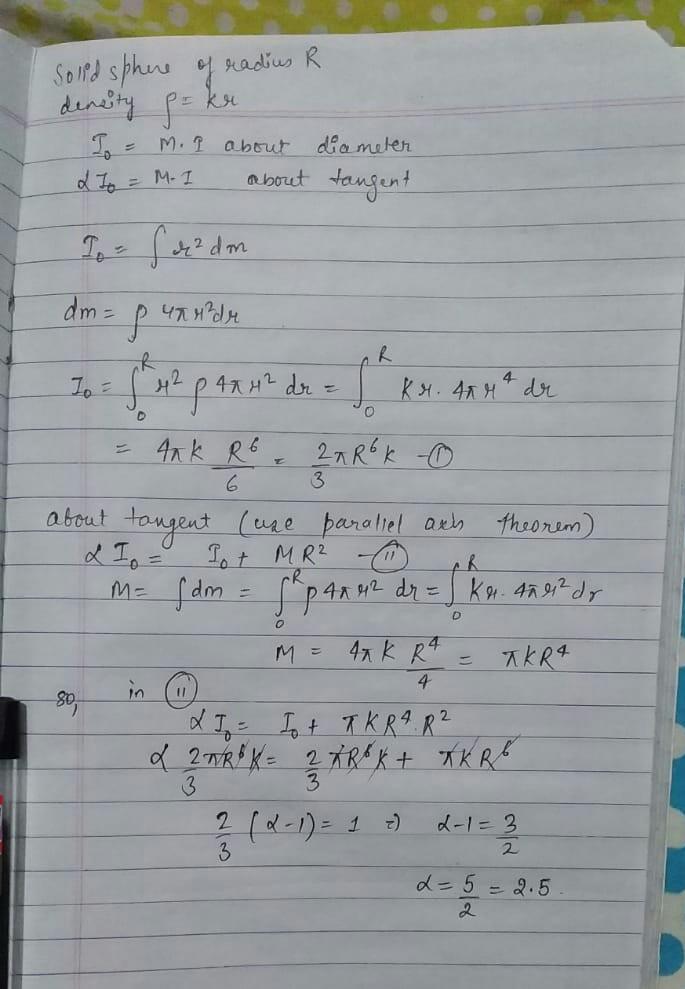 Solid sphere of radius R
density ρ = kr
I₀ = M.I about diameter
αI₀ = M.I about tangent
I₀ = ∫ r² dm
dm = ρ 4πr²dr
I₀ = ∫₀ᴿ r² ρ 4πr² dr = ∫₀ᴿ Kr. 4πr⁴ dr
= 4πk R⁶/6 = 2/3 πR⁶k -①
about tangent (use parallel axis theorem)
αI₀ = I₀ + MR² -⑪
M = ∫dm = ∫₀ᴿ ρ4πr² dr = ∫₀ᴿ Kr. 4πr² dr
M = 4πK R⁴/4 = πKR⁴
so, in ⑪
αI₀ = I₀ + πKR⁴.R²
α 2/3 πR⁶K = 2/3 πR⁶K + πKR⁶
2/3 (α-1) = 1 ⇒ α-1 = 3/2
α = 5/2 = 2.5.